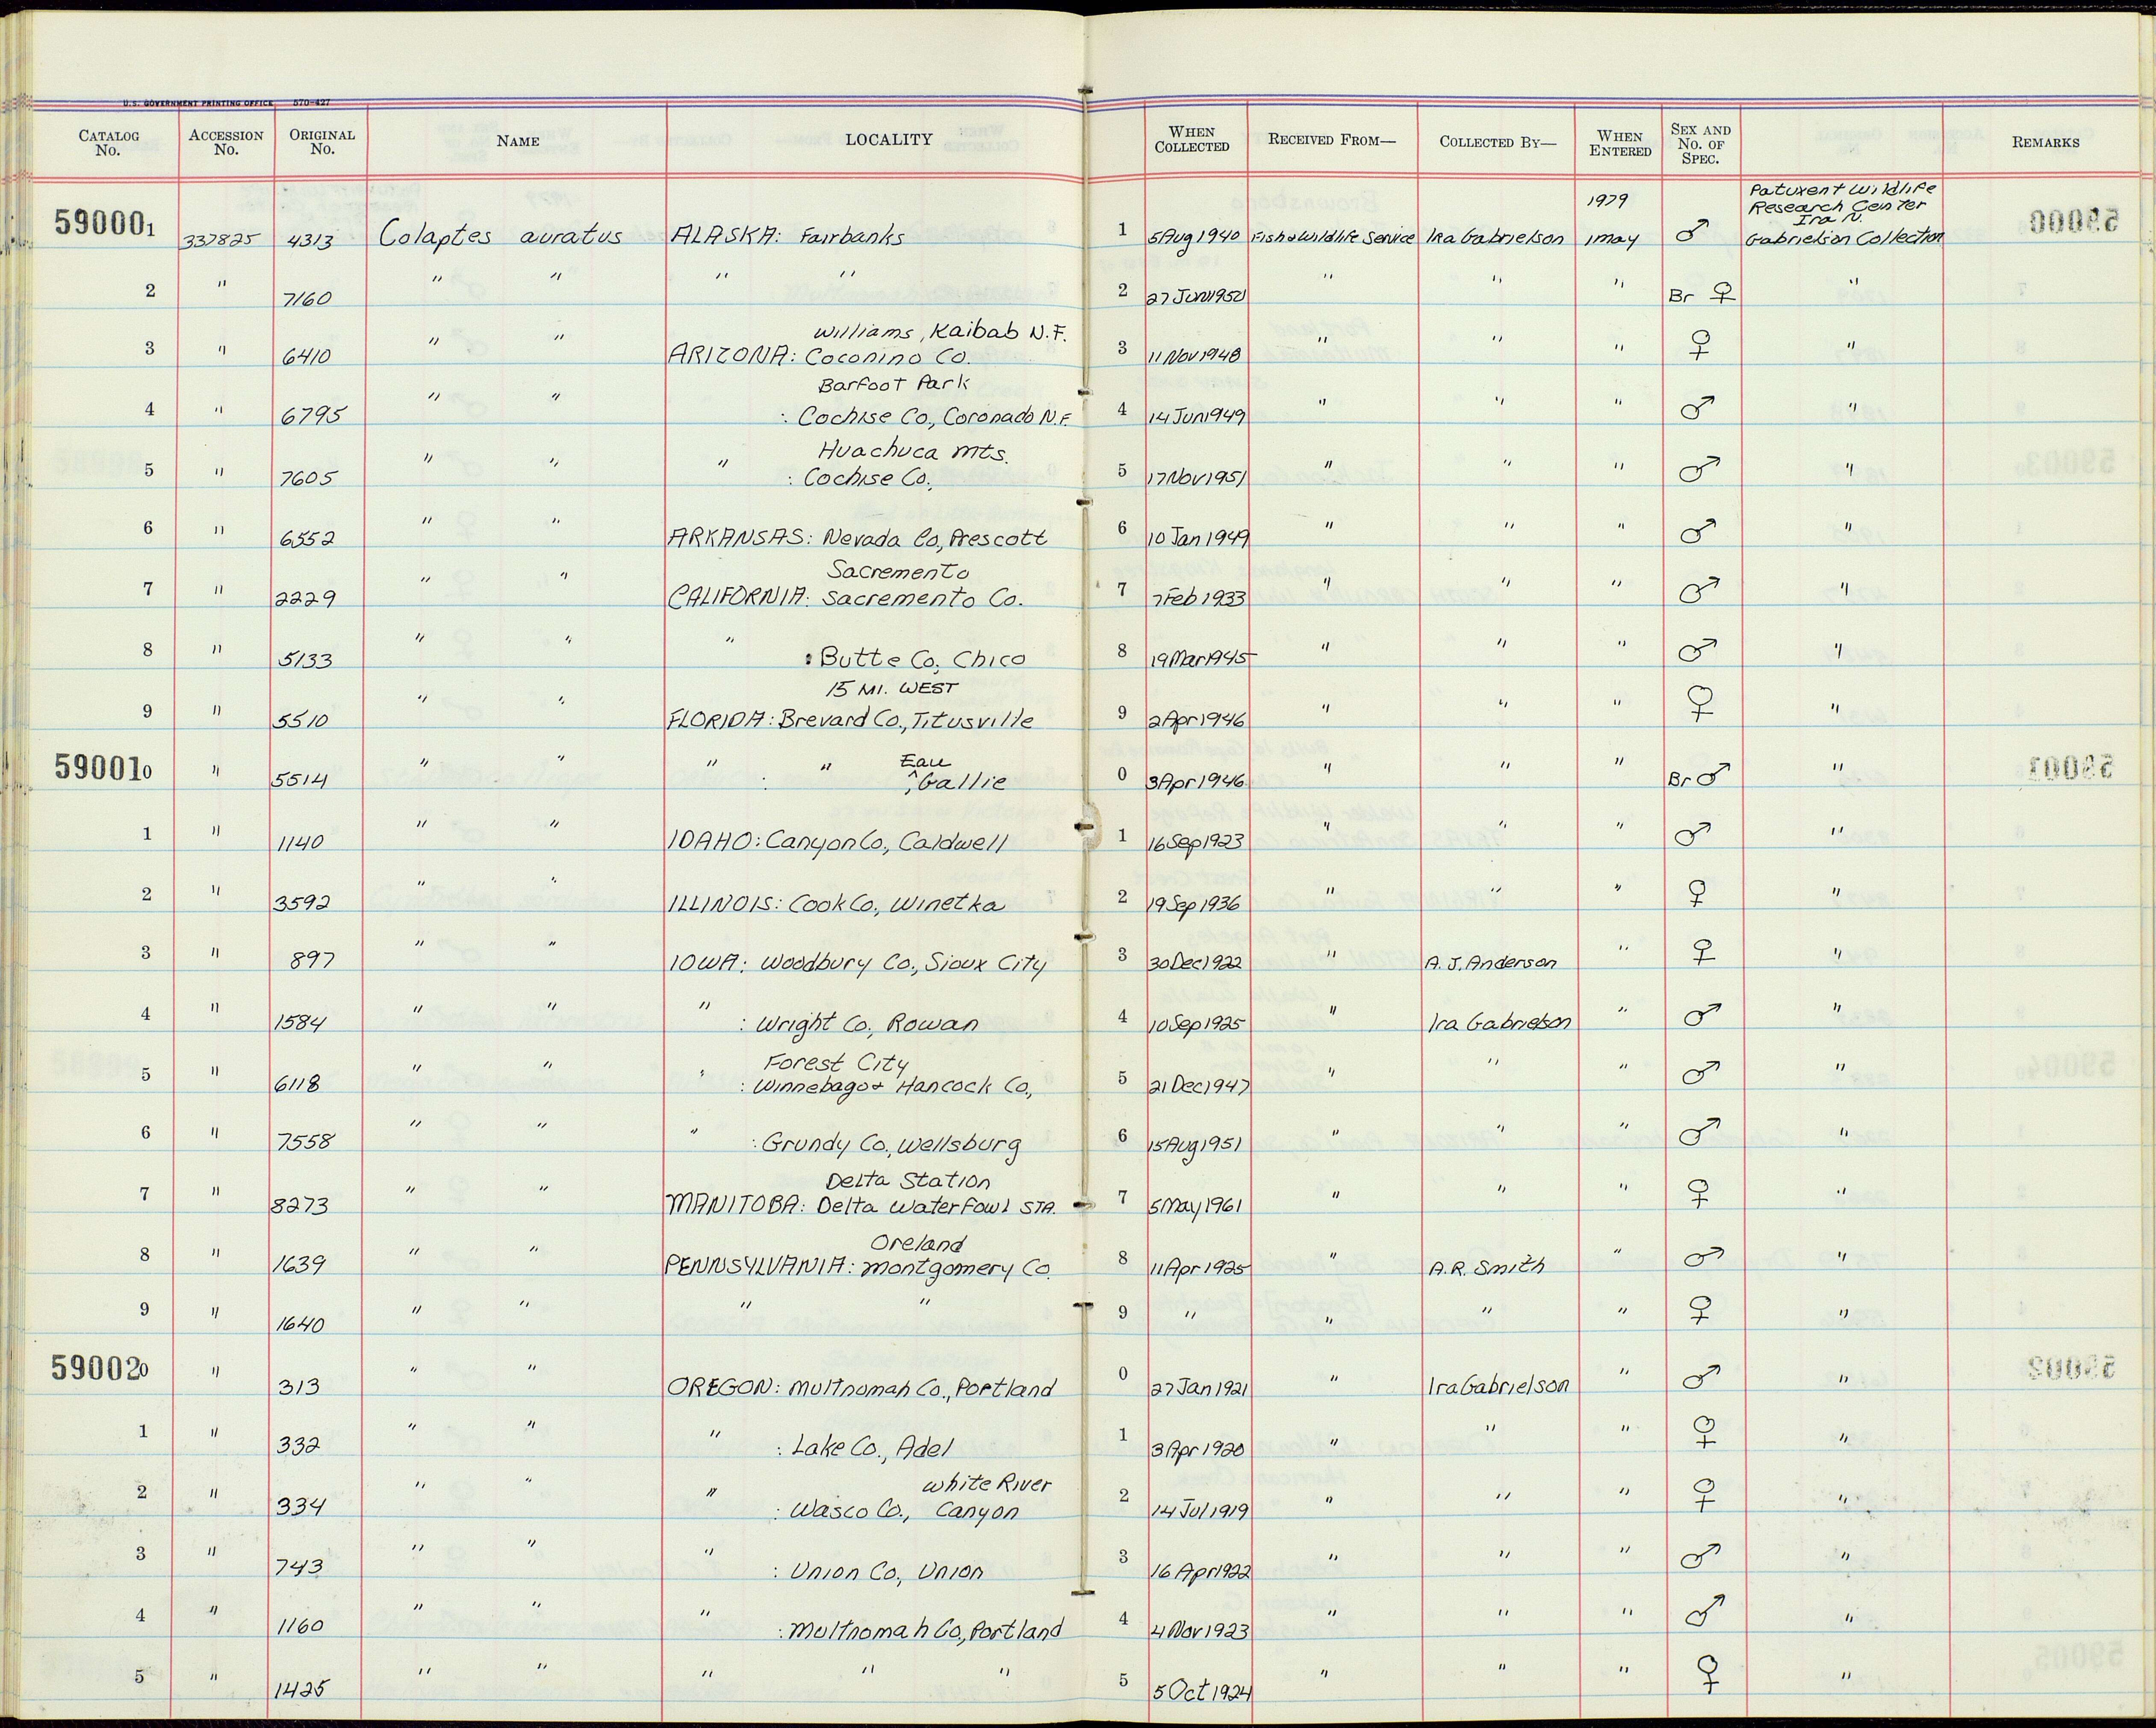 U.S. GOVERNMENT PRINTING OFFICE 570-427
CATALOG No. ACCESSION No. ORIGINAL No. NAME LOCALITY WHEN COLLECTED RECEIVED FROM— COLLECTED BY— WHEN ENTERED SEX AND No. OF SPEC. REMARKS
1979 Patuxent Wildlife
Research Center
Ira N.
590001 337825 4313 Colaptes auratus ALASKA: Fairbanks 1 5Aug1940 Fish & Wildlife Service Ira Gabrielson 1may ♂ Gabrielson Collection
2 " 7160 " " " " 2 27Jun1950 " " " Br ♀ "
Williams, Kaibab N.F.
3 " 6410 " " ARIZONA: Coconino Co. 3 11Nov1948 " " " ♀ "
Barfoot Park
4 " 6795 " " : Cochise Co., Coronado N.F. 4 14Jun1949 " " " ♂ "
Huachuca mts.
5 " 7605 " " " : Cochise Co., 5 17Nov1951 " " " ♂ "
6 " 6552 " " ARKANSAS: Nevada Co, Prescott 6 10Jan1949 " " " ♂ "
Sacremento
7 " 2229 " " CALIFORNIA: Sacremento Co. 7 7Feb1933 " " " ♂ "
8 " 5133 " " " : Butte Co, Chico 8 19Mar1945 " " " ♂ "
15 MI. WEST
9 " 5510 " " FLORIDA: Brevard Co., Titusville 9 2Apr1946 " " " ♀ "
Eau
590010 " 5514 " " " : " ^Gallie 0 3Apr1946 " " " Br ♂ "
1 " 1140 " " IDAHO: Canyon Co., Caldwell 1 16Sep1923 " " " ♂ "
2 " 3592 " " ILLINOIS: Cook Co., Winetka 2 19Sep1936 " " " ♀ "
3 " 897 " " IOWA: Woodbury Co., Sioux City 3 30Dec1922 " A.J. Anderson " ♀ "
4 " 1584 " " " : Wright Co., Rowan 4 10Sep1925 " Ira Gabrielson " ♂ "
Forest City
5 " 6118 " " " : Winnebago & Hancock Co., 5 21Dec1947 " " " ♂ "
6 " 7558 " " " : Grundy Co., Wellsburg 6 15Aug1951 " " " ♂ "
Delta Station
7 " 8273 " " MANITOBA: Delta Waterfowl STA. 7 5May1961 " " " ♀ "
Oreland
8 " 1639 " " PENNSYLVANIA: Montgomery Co. 8 11Apr1925 " A.R. Smith " ♂ "
9 " 1640 " " " " 9 " " " " ♀ "
590020 " 313 " " OREGON: Multnomah Co., Portland 0 27Jan1921 " Ira Gabrielson " ♂ "
1 " 332 " " " : Lake Co., Adel 1 3Apr1920 " " " ♀ "
White River
2 " 334 " " " : Wasco Co., Canyon 2 14Jul1919 " " " ♀ "
3 " 743 " " " : Union Co., Union 3 16Apr1922 " " " ♂ "
4 " 1160 " " " : Multnomah Co., Portland 4 4Nov1923 " " " ♂ "
5 " 1425 " " " " " 5 5Oct1924 " " " ♀ "